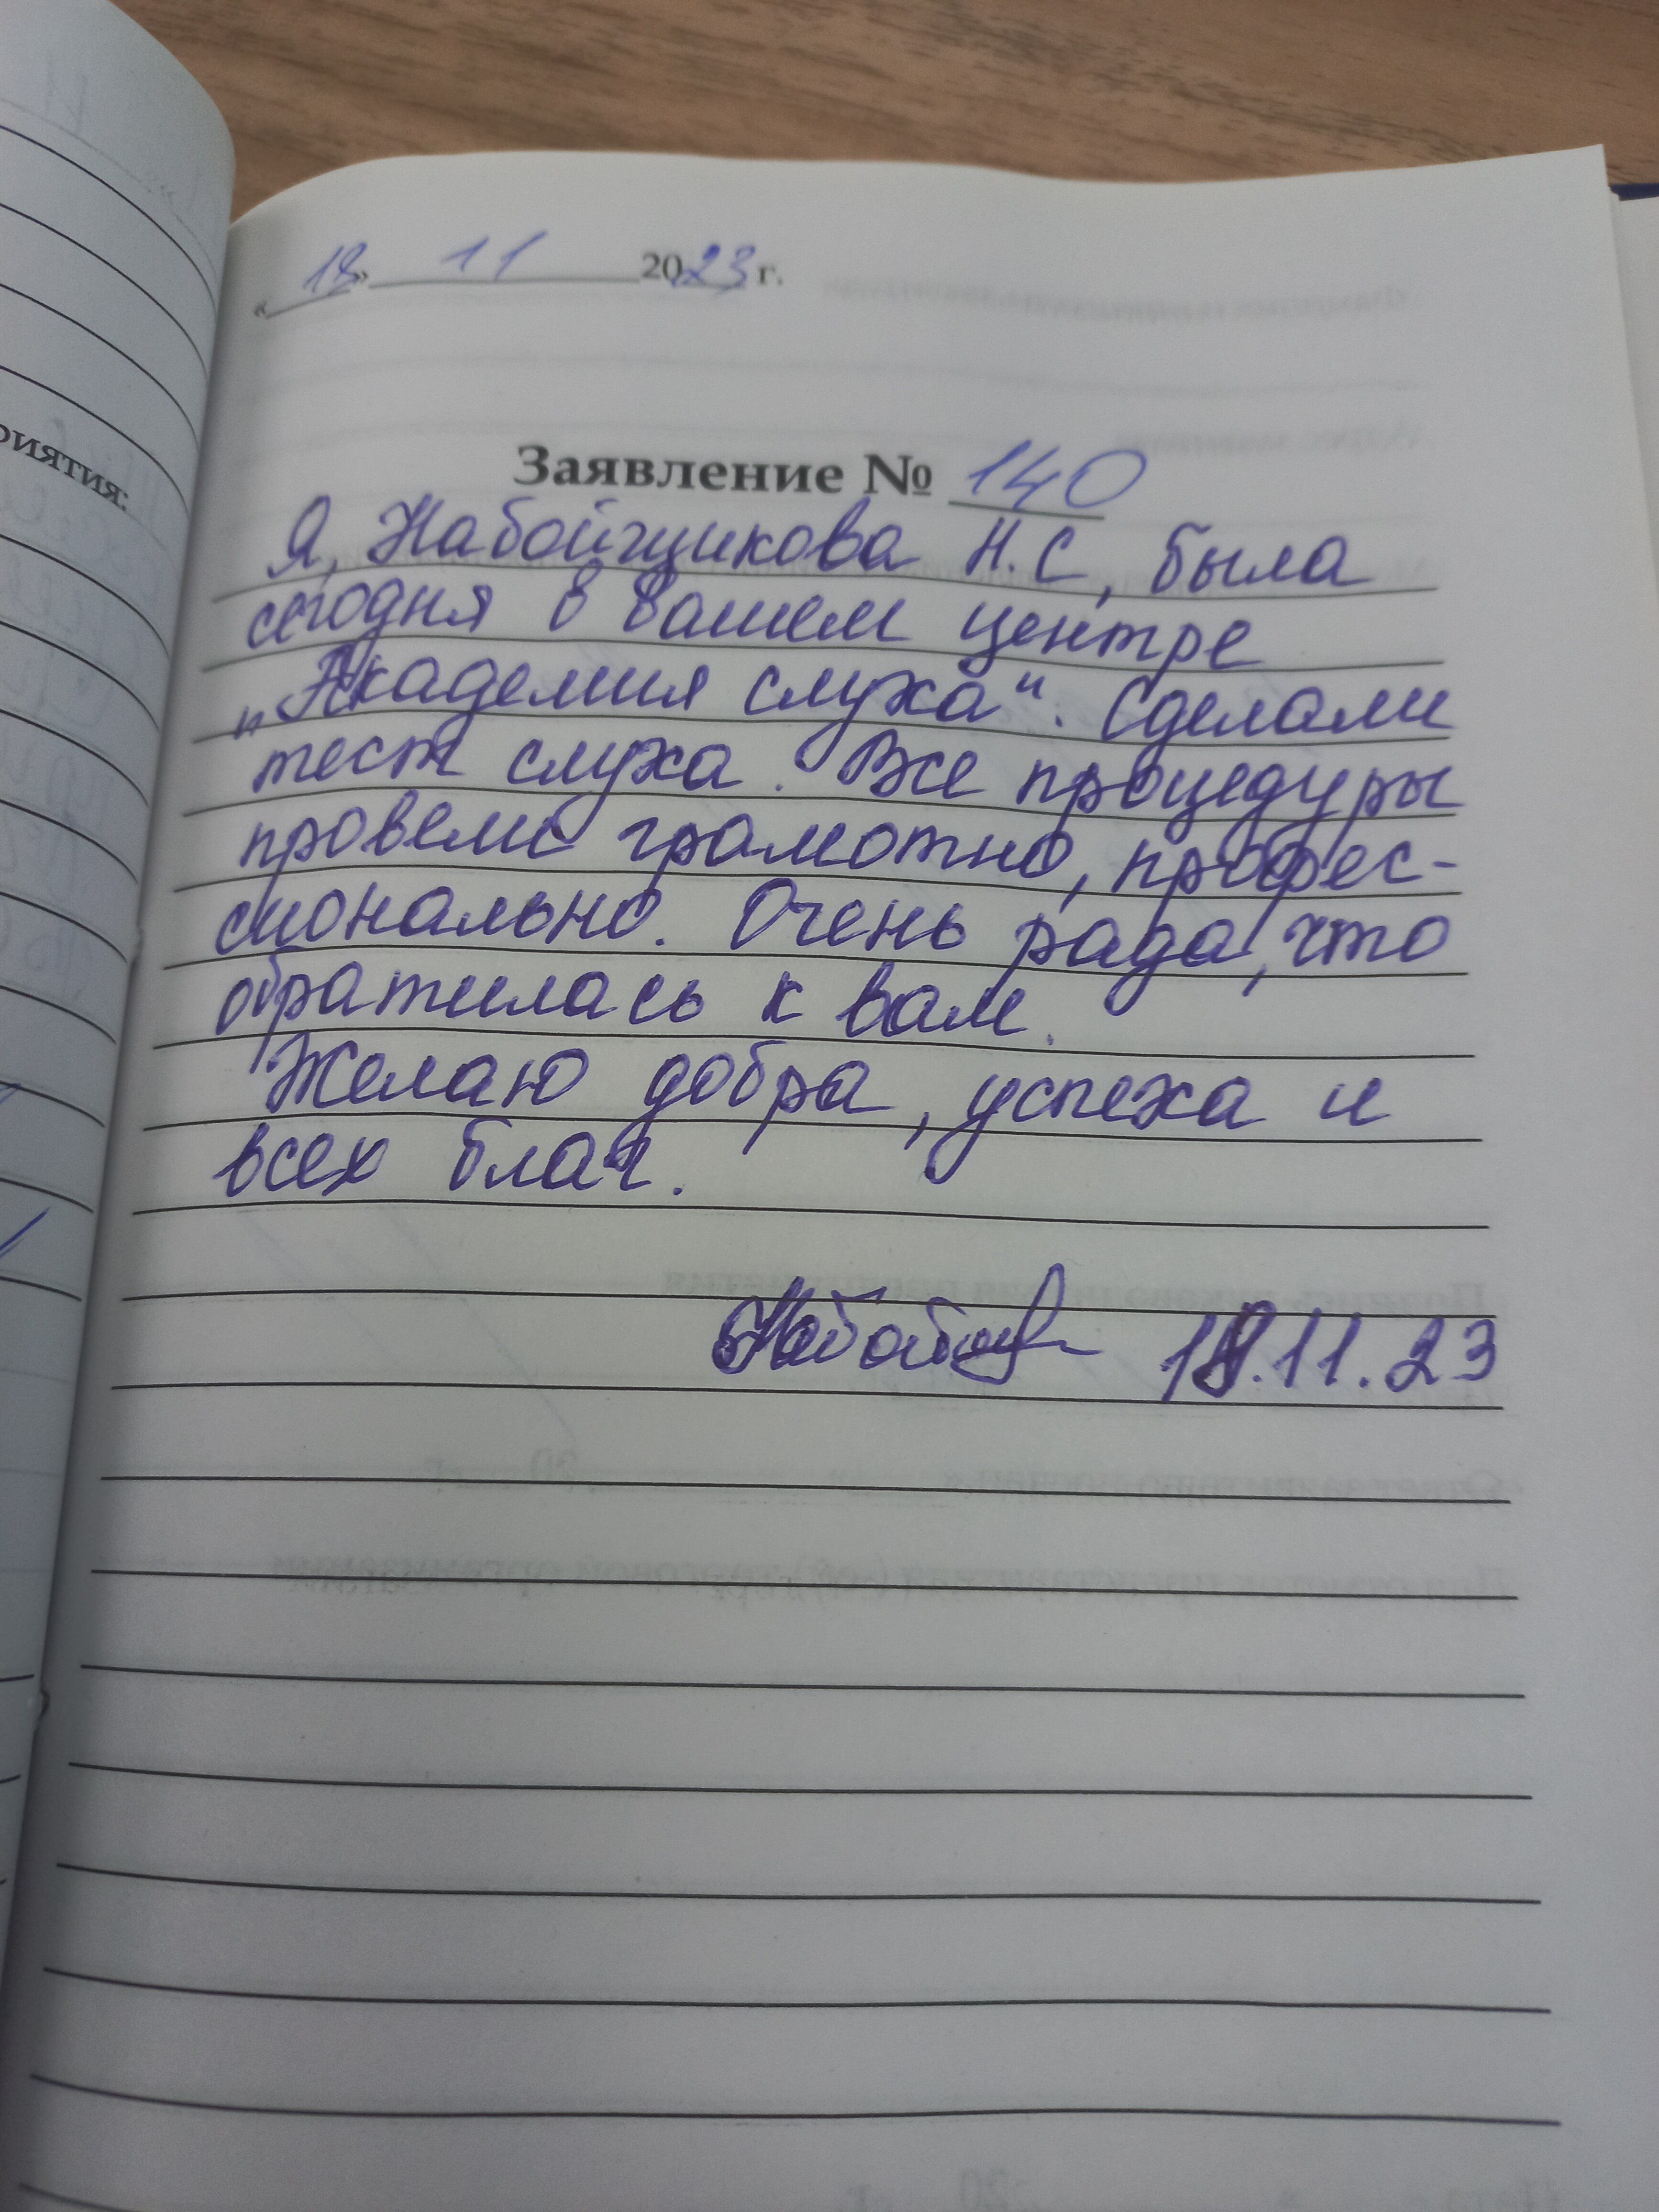 риятия:
« 18 » 11 2023 г.
Заявление № 140
Я, Набойщикова Н.С, была
сегодня в вашем центре
„Академия слуха“. Сделали
тест слуха. Все процедуры
провели грамотно, профес-
сионально. Очень рада, что
обратилась к вам.
Желаю добра, успеха и
всех благ.
18.11.23